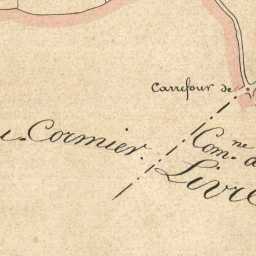 Carrefour de
u. Cormier.
Com.ne d
Livré